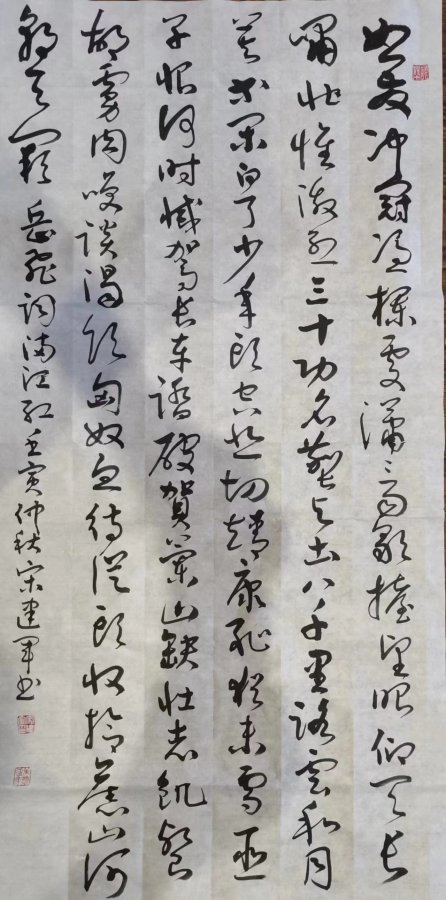 怒发冲冠凭栏处潇々雨歇抬望眼仰天长
啸壮怀激烈三十功名尘与土八千里路云和月
莫等闲白了少年头空悲切靖康耻犹未雪臣
子恨何时灭驾长车踏破贺兰山缺壮志饥餐
胡虏肉笑谈渴饮匈奴血待从头收拾旧山河
朝天阙 岳飞词满江红壬寅仲秋宋建军书